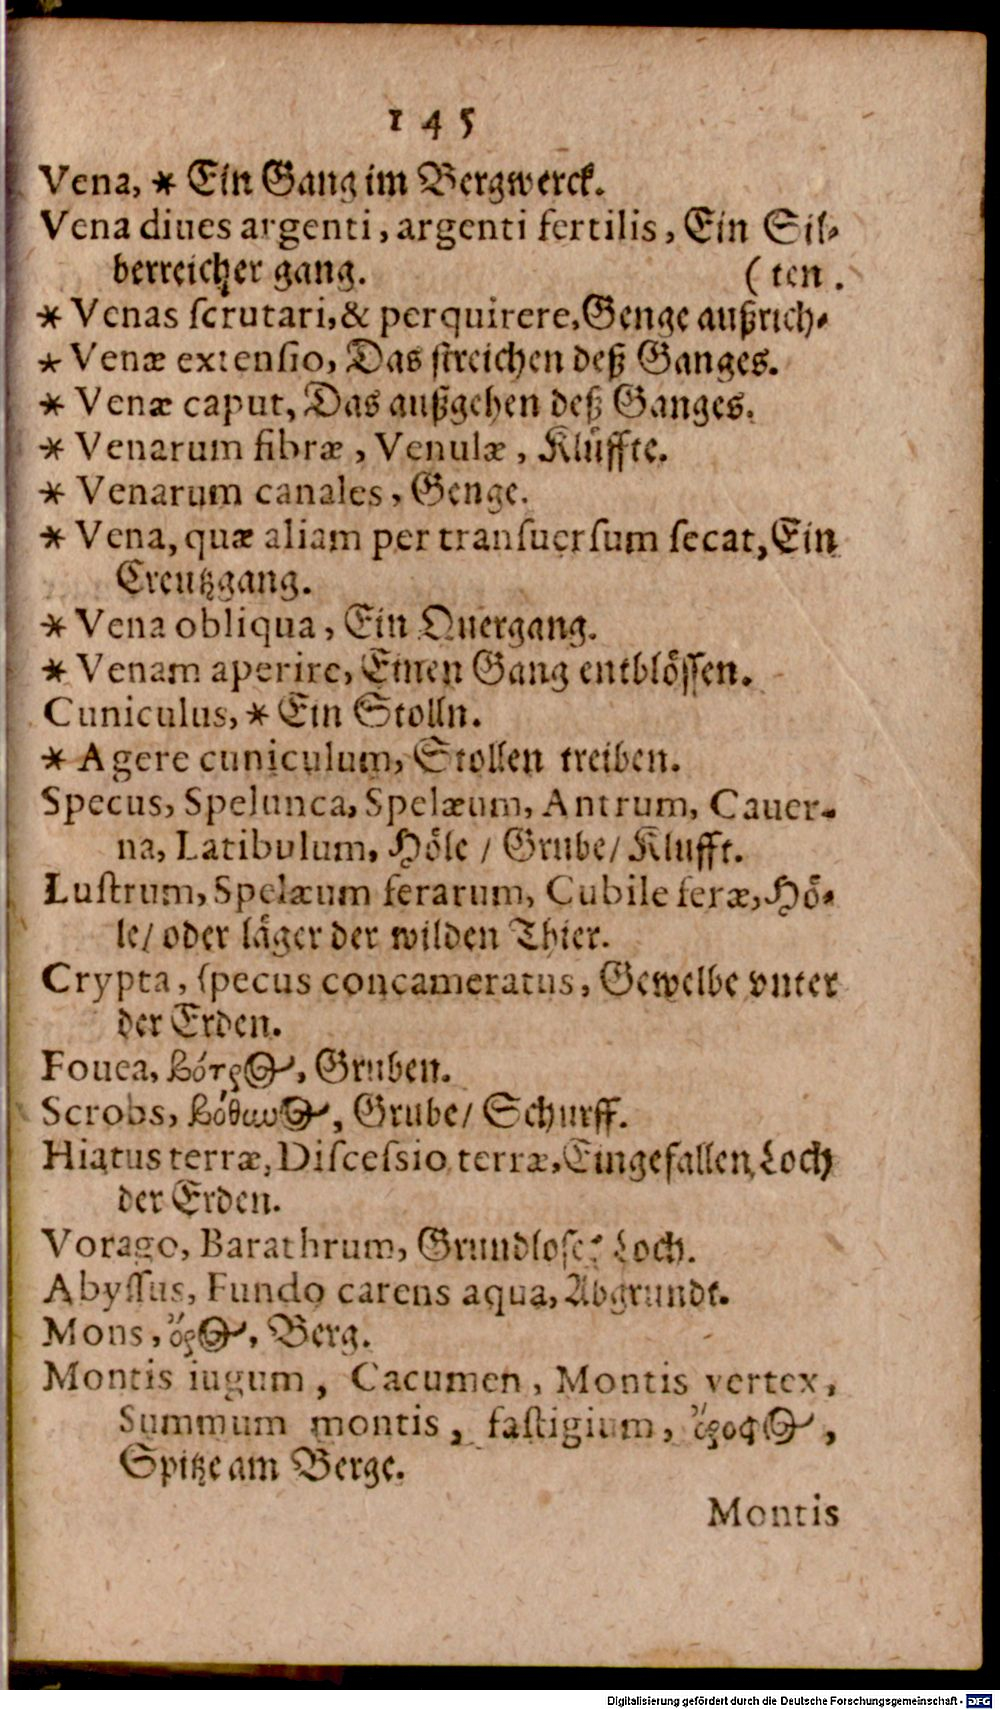 145
Vena, * Ein Gang im Bergwerck.
Vena diues argenti, argenti fertilis, Ein Sil-
berreicher gang. (ten.
* Venas scrutari, & perquirere, Genge außrich-
* Venæ extensio, Das streichen deß Ganges.
* Venæ caput, Das außgehen deß Ganges.
* Venarum fibræ, Venulæ, Klüffte.
* Venarum canales, Genge.
* Vena, quæ aliam per transuersum secat, Ein
Creutzgang.
* Vena obliqua, Ein Quergang.
* Venam aperire, Einen Gang entblössen.
Cuniculus, * Ein Stolln.
* Agere cuniculum, Stollen treiben.
Specus, Spelunca, Spelæum, Antrum, Cauer-
na, Latibulum, Höle / Grube / Klufft.
Lustrum, Spelæum ferarum, Cubile feræ, Hö-
le / oder läger der wilden Thier.
Crypta, specus concameratus, Gewelbe vnter
der Erden.
Fouea, Gruben.
Scrobs, Grube / Schurff.
Hiatus terræ, Discessio terræ, Eingefallen Loch
der Erden.
Vorago, Barathrum, Grundloses Loch.
Abyssus, Fundo carens aqua, Abgrundt.
Mons, ὄρος, Berg.
Montis iugum, Cacumen, Montis vertex,
Summum montis, fastigium,
Spitze am Berge.
Montis
Digitalisierung gefördert durch die Deutsche Forschungsgemeinschaft - DFG